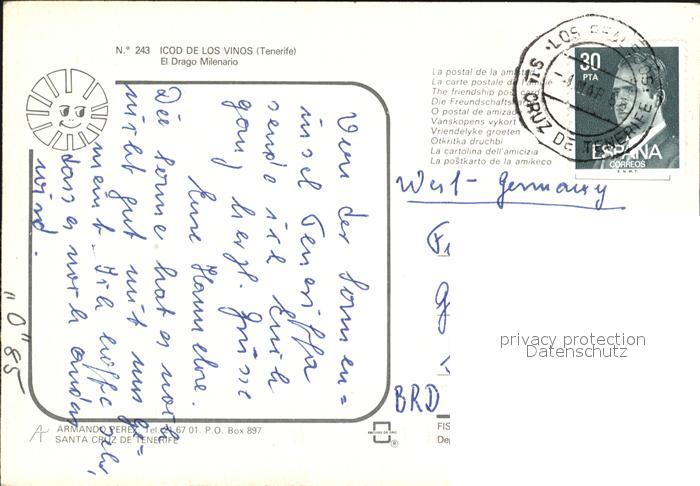 N.° 243 ICOD DE LOS VINOS (Tenerife)
El Drago Milenario
Von der Sonnen=
insel Teneriffa
sende ich Euch
herzl. Grüsse
Eure Hannelore.
Die Sonne hat es noch
nicht gut mit uns ge=
meint. Ich hoffe sehr,
dass es noch anders
wird.
"O" 85
A
ARMANDO PEREZ Tel. 21 67 01. P.O. Box 897
SANTA CRUZ DE TENERIFE
La postal de la amistad
La carte postale de l'amitié
The friendship post card
Die Freundschafts
O postal de amizad
Vanskopens vykort
Vriendelyke groeten
Otkritka druchbi
La cartolina dell'amicizia
La poŝtkarto de la amikeco
30
PTA
ESPAÑA
CORREOS
F.N.M.T.
CRUZ DE TENERIFE
West-Germany
BRD
FIS
De
®
privacy protection
Datenschutz